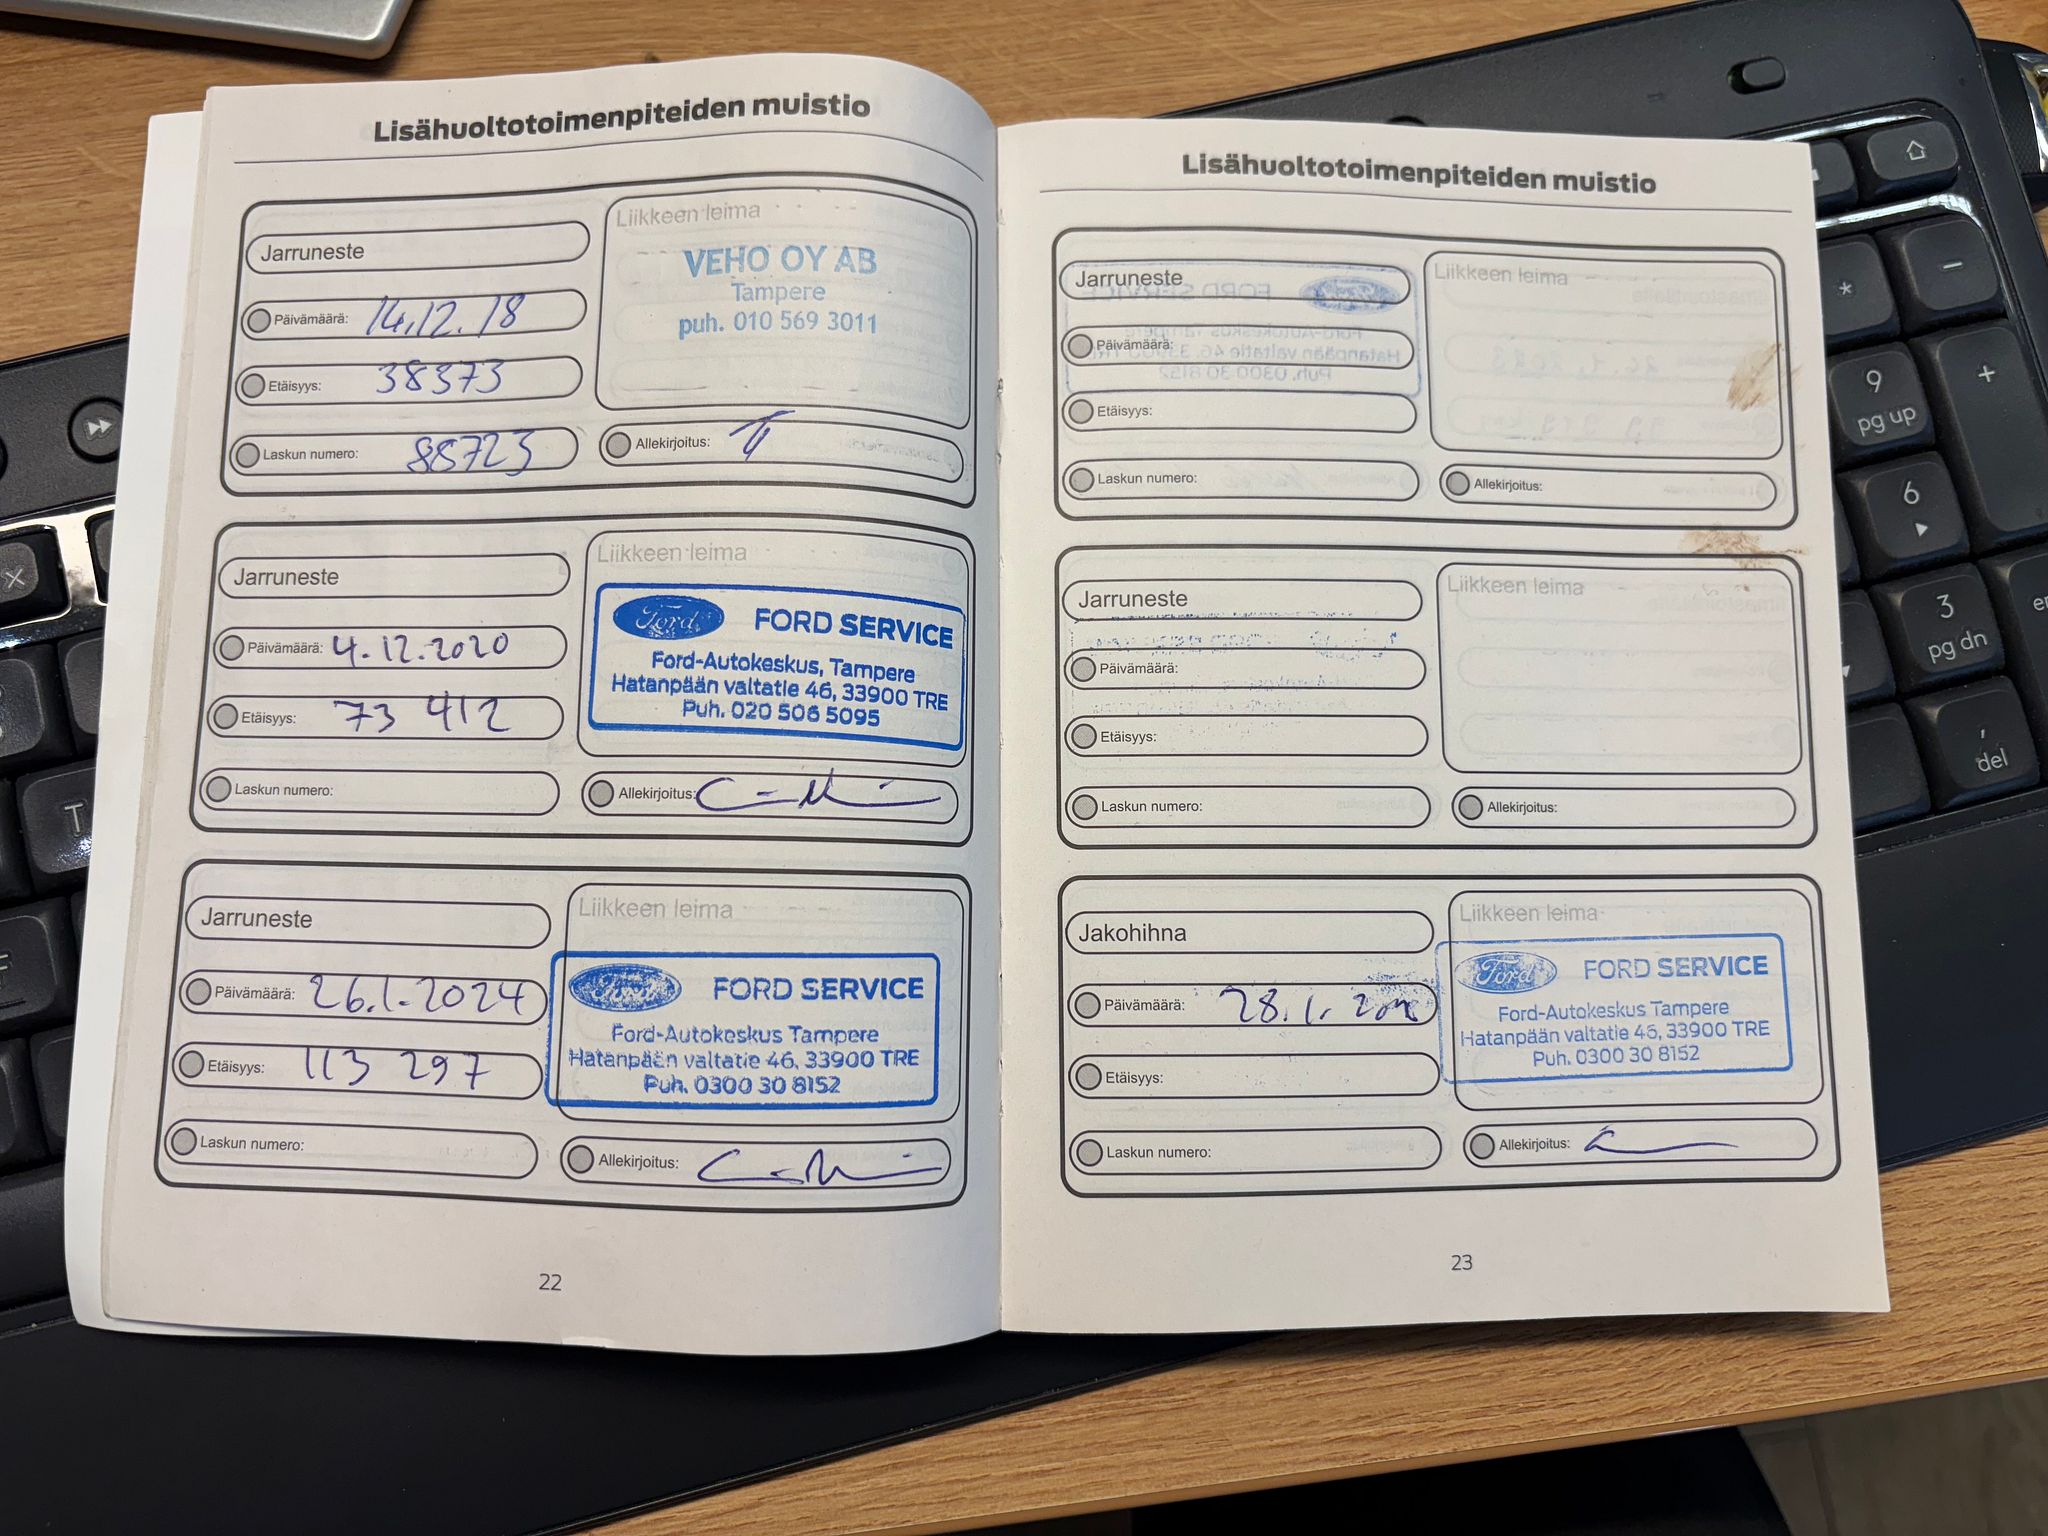 Lisähuoltotoimenpiteiden muistio
Jarruneste
Päivämäärä: 14.12.18
Etäisyys: 38373
Laskun numero: 88723
Liikkeen leima
VEHO OY AB
Tampere
puh. 010 569 3011
Allekirjoitus:
Jarruneste
Päivämäärä: 4.12.2020
Etäisyys: 73 412
Laskun numero:
Liikkeen leima
Ford FORD SERVICE
Ford-Autokeskus, Tampere
Hatanpään valtatie 46, 33900 TRE
Puh. 020 506 5095
Allekirjoitus:
Jarruneste
Päivämäärä: 26.1.2024
Etäisyys: 113 297
Laskun numero:
Liikkeen leima
Ford FORD SERVICE
Ford-Autokeskus Tampere
Hatanpään valtatie 46, 33900 TRE
Puh. 0300 30 8152
Allekirjoitus:
22
Lisähuoltotoimenpiteiden muistio
Jarruneste
Päivämäärä:
Etäisyys:
Laskun numero:
Liikkeen leima
Allekirjoitus:
Jarruneste
Päivämäärä:
Etäisyys:
Laskun numero:
Liikkeen leima
Allekirjoitus:
Jakohihna
Päivämäärä: 28.1.
Etäisyys:
Laskun numero:
Liikkeen leima
Ford FORD SERVICE
Ford-Autokeskus Tampere
Hatanpään valtatie 46, 33900 TRE
Puh. 0300 30 8152
Allekirjoitus:
23
*
-
9
pg up
+
6
3
pg dn
,
del
T
F
X